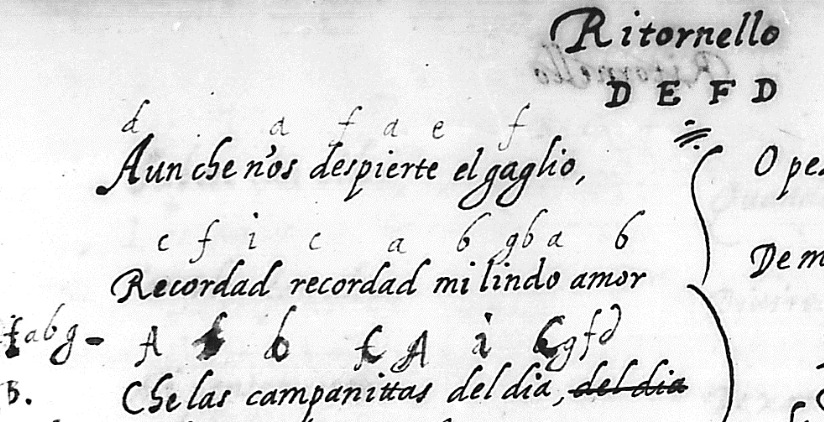 Ritornello
D E F D
d a f a e f
Aunche nos despierte el gaglio,
c f i c a b g b a b
Recordad recordad mi lindo amor
a b g - A b f A i g f d
B. Che las campanittas del dia, del dia
O pe
De m